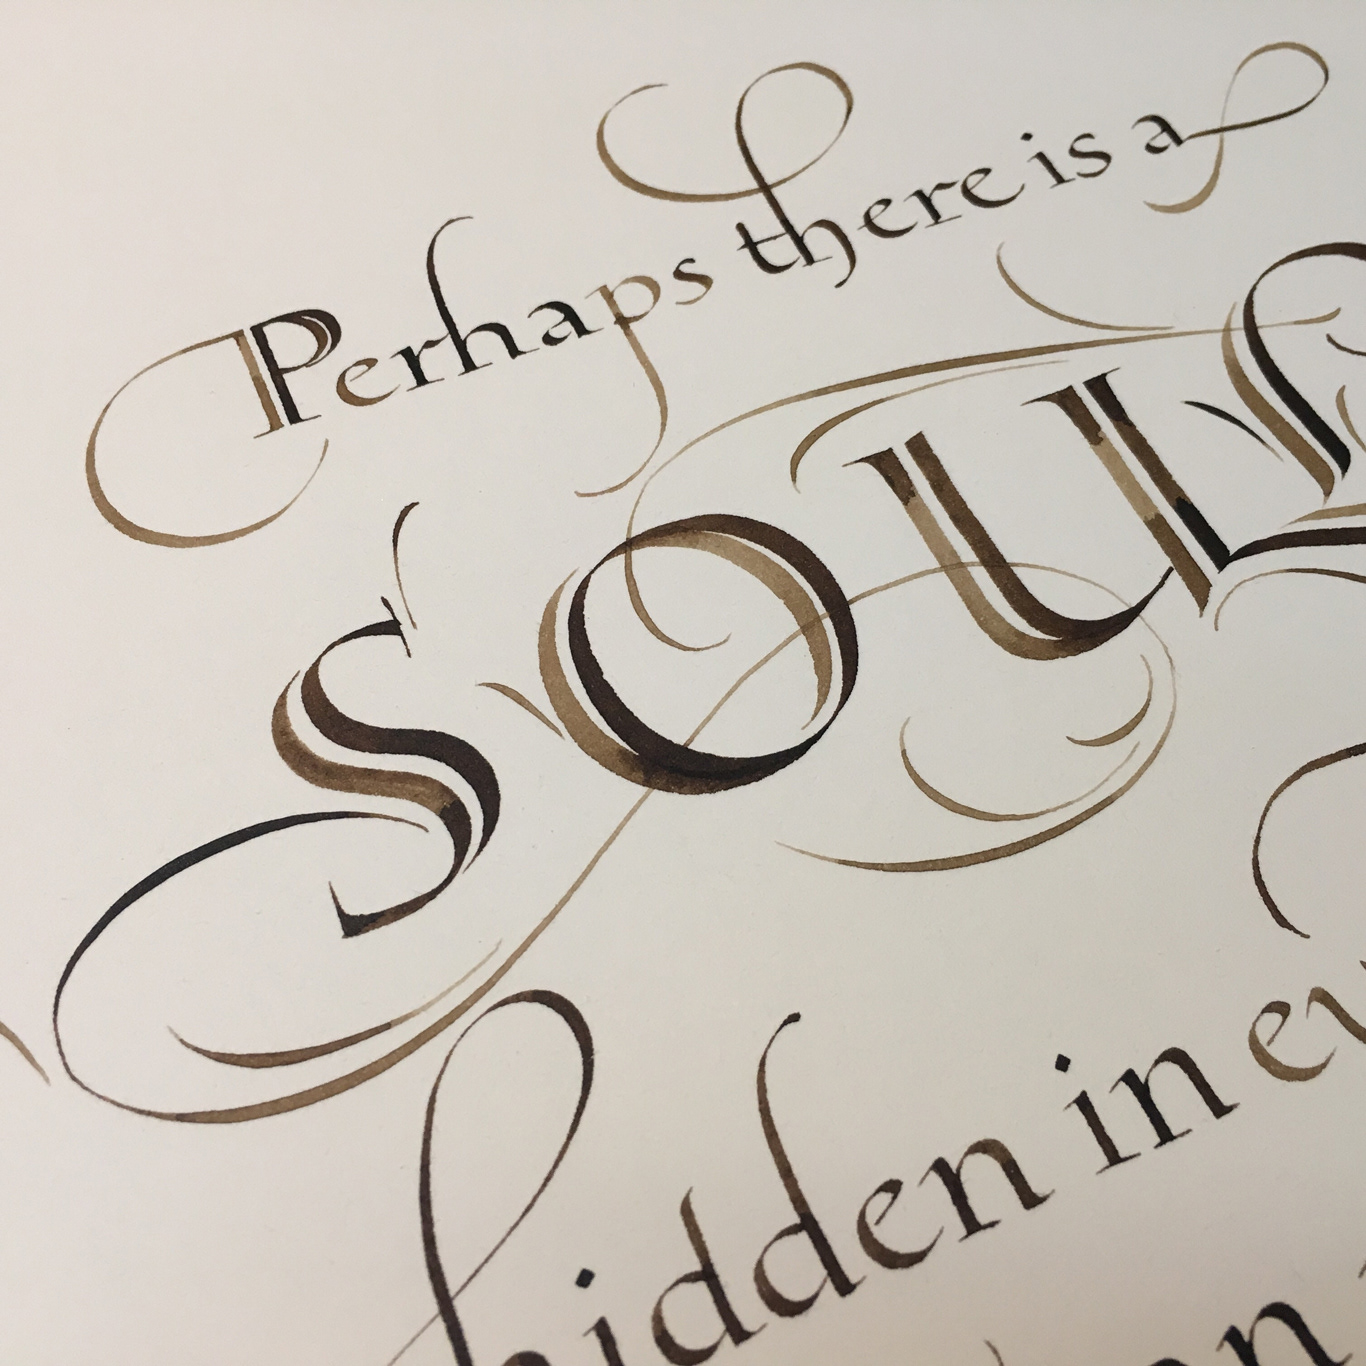 Perhaps there is a
SOUL
hidden in